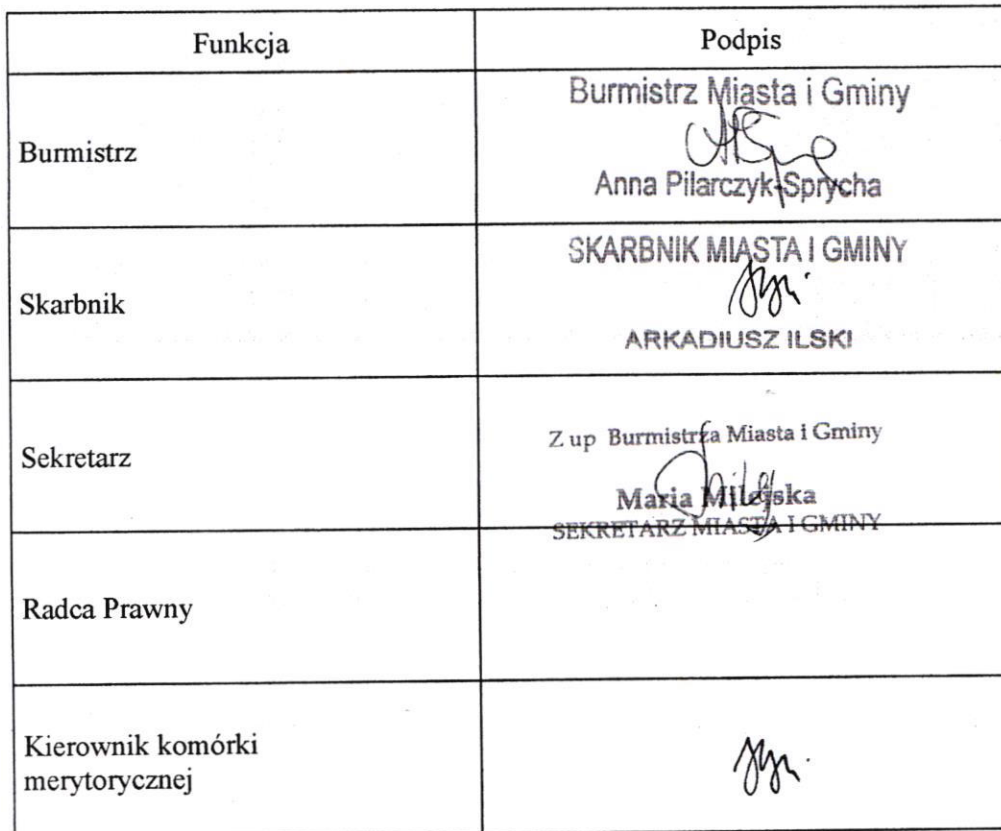 Funkcja
Podpis
Burmistrz
Burmistrz Miasta i Gminy
Anna Pilarczyk-Sprycha
Skarbnik
SKARBNIK MIASTA I GMINY
ARKADIUSZ ILSKI
Sekretarz
Z up Burmistrza Miasta i Gminy
Maria Milejska
SEKRETARZ MIASTA I GMINY
Radca Prawny
Kierownik komórki
merytorycznej